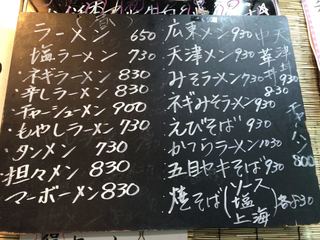 ラーメン 650
塩ラーメン 730
・ネギラーメン 830
・辛しラーメン 830
・チャーシューメン 900
・もやしラーメン 730
・タンメン 730
・担々メン 830
マーボーメン 830
広東メン 930
天津メン 930
みそラーメン 730
ネギみそラーメン 930
えびそば 930
かつらーメン 1030
五目ヤキそば 930
焼そば(ソース 塩 上海)各830
中華丼 930
天津丼 830
チャーハン 800